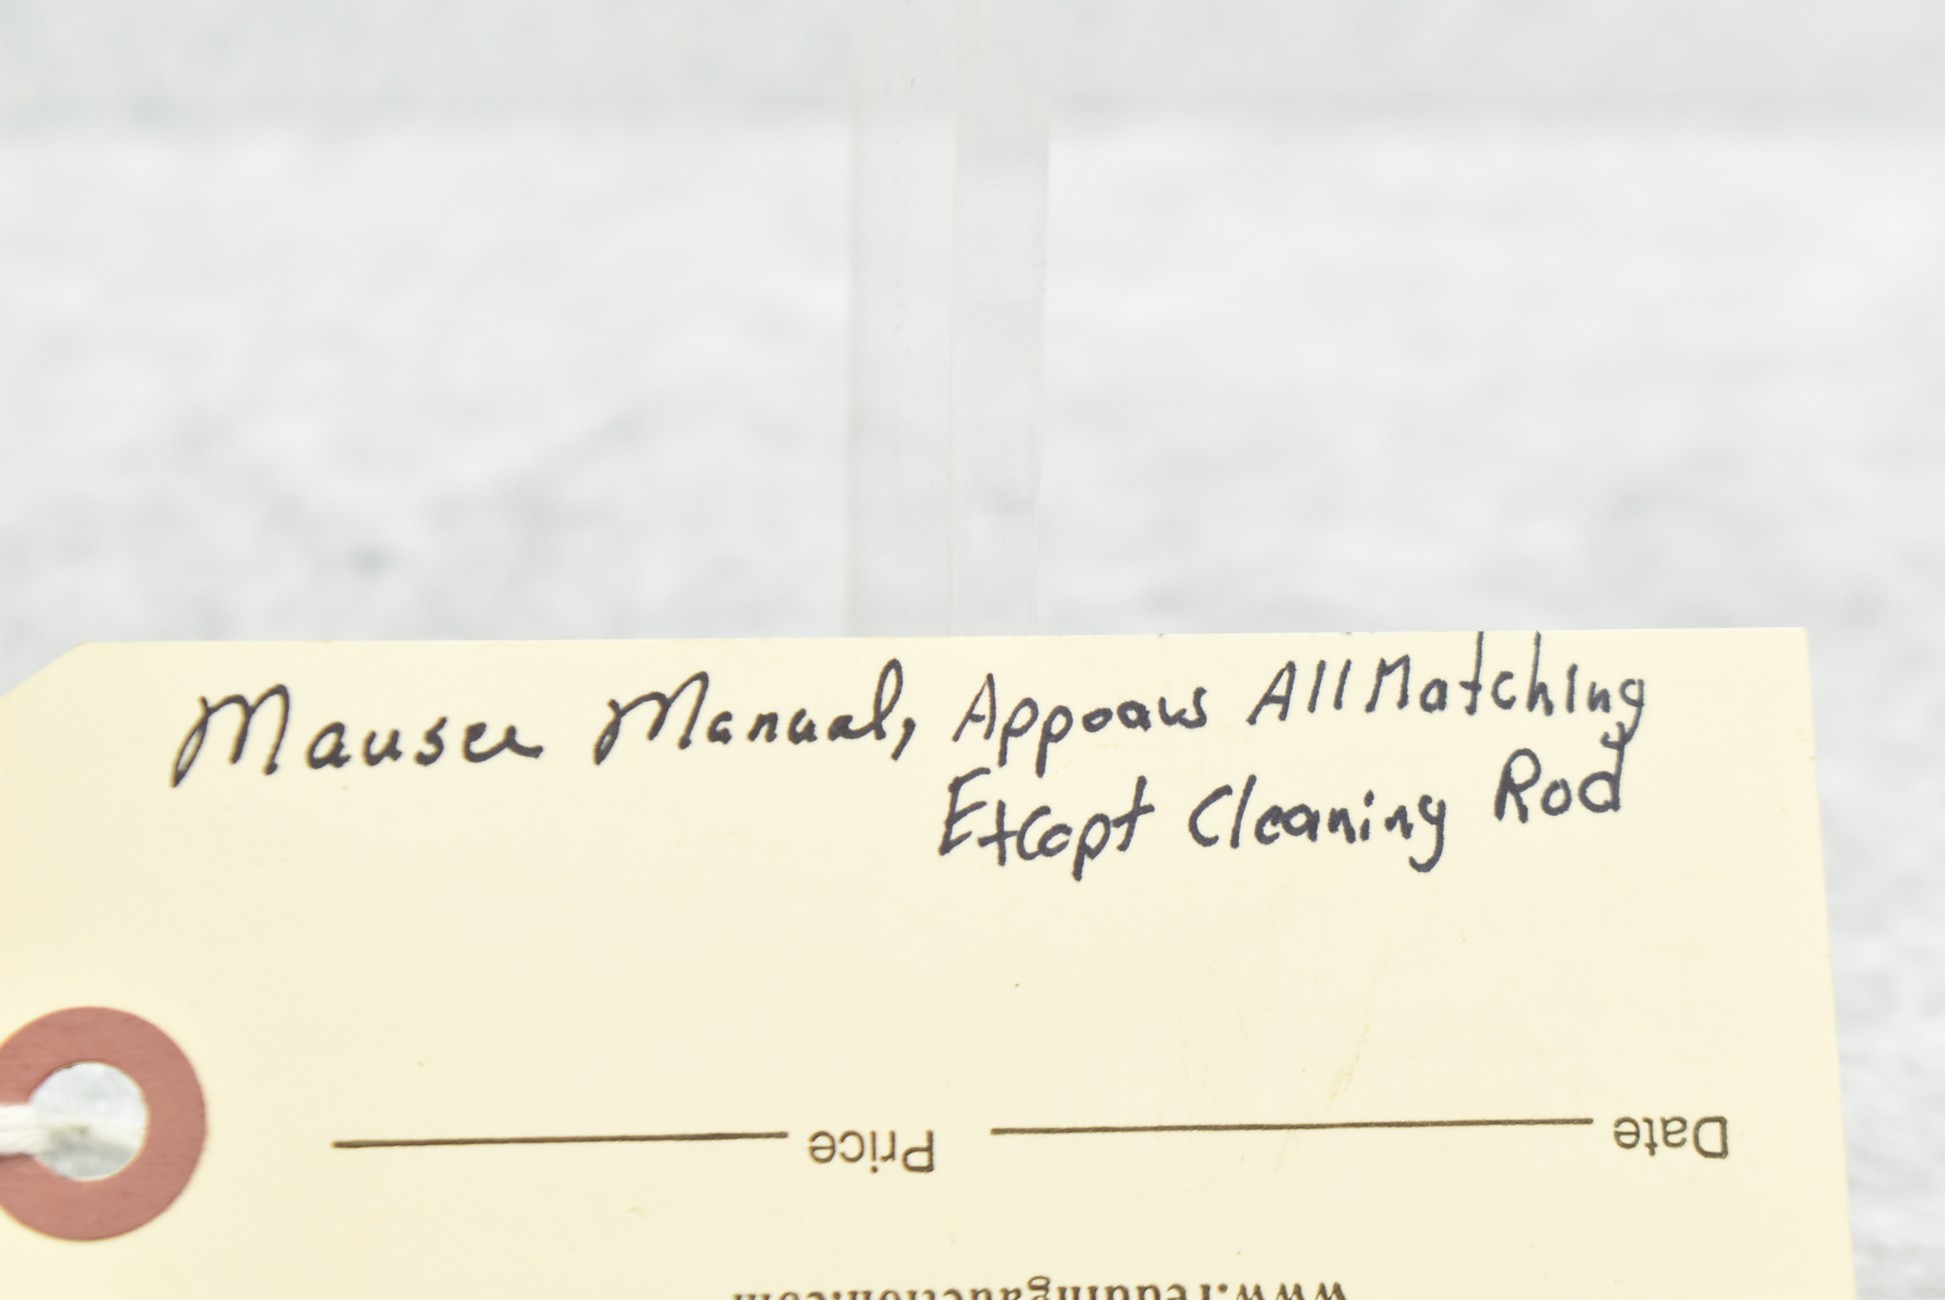 Mauser Manual, Appears All Matching
Except Cleaning Rod
Price
Date
www.reddingauction.com